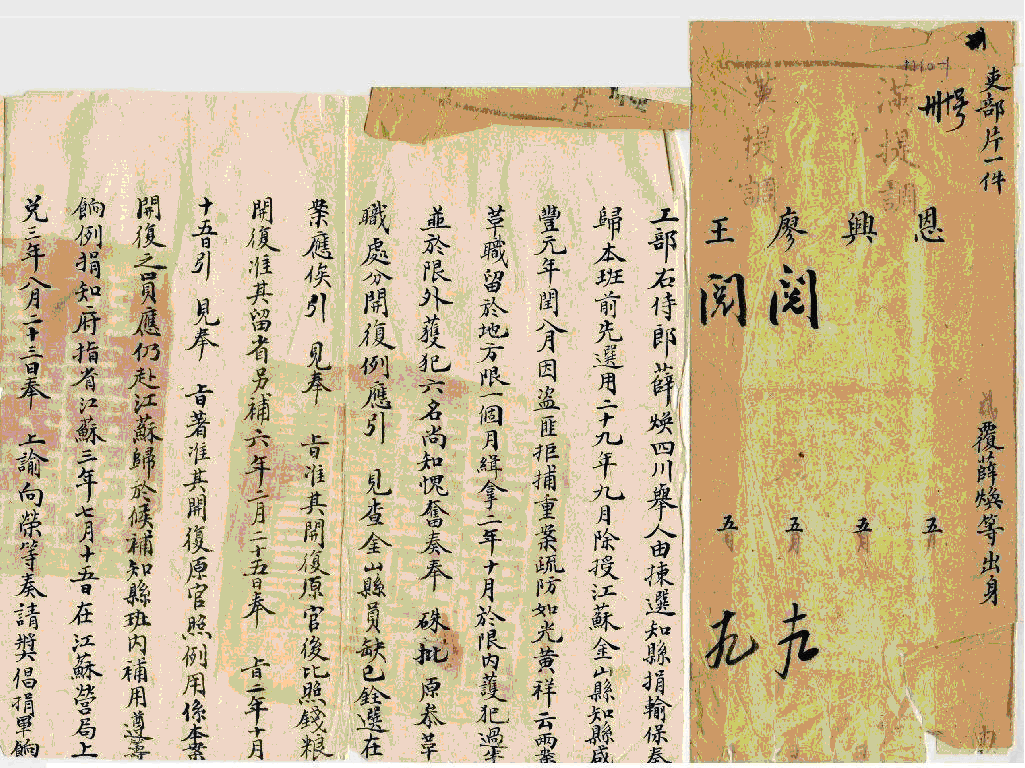 吏部片一件
卅號
覆薛煥等出身
滿提調
漢提調
恩 五
興 五
廖 閱 五 九
王 閱 五 九
工部右侍郎薛煥四川舉人由揀選知縣捐輸保奏
歸本班前先選用二十九年九月除授江蘇金山縣知縣咸
豐元年閏八月因盜匪拒捕重案疏防如光黃祥云兩案
革職留於地方限一個月緝拿二年十月於限內護犯過半
並於限外獲犯六名尚知愧奮奏奉 硃批原叅革
職處分開復例應引 見查金山縣員缺已銓選在
案應俟引 見奉 㫖准其開復原官後比照錢粮
開復准其留省另補六年二月二十五日奉 㫖二年十月
十五日引 見奉 㫖著准其開復原官照例用係本案
開復之員應仍赴江蘇歸於候補知縣班內補用遵籌
餉例捐知府指省江蘇三年七月十五日在江蘇營局上
兌三年八月二十三日奉 上諭向榮等奏請奬倡捐軍餉